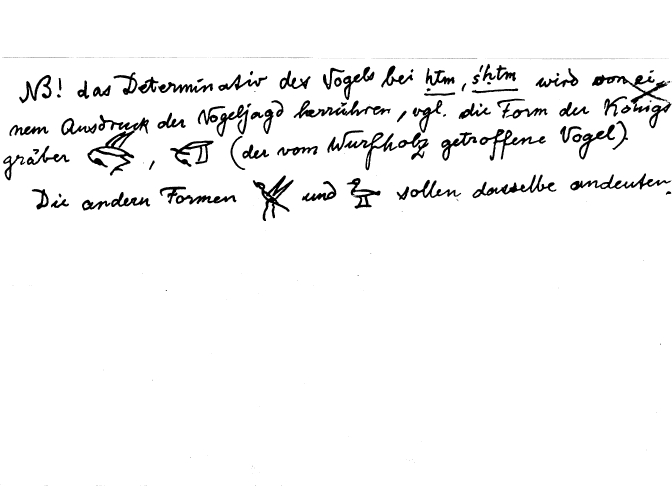 NB! das Determinativ des Vogels bei ḥtm, sḥtm wird von ei-
nem Ausdruck der Vogeljagd herrühren, vgl. die Form der Königs
gräber , (der vom Wurfholz getroffene Vogel).
Die andern Formen und sollen dasselbe andeuten.